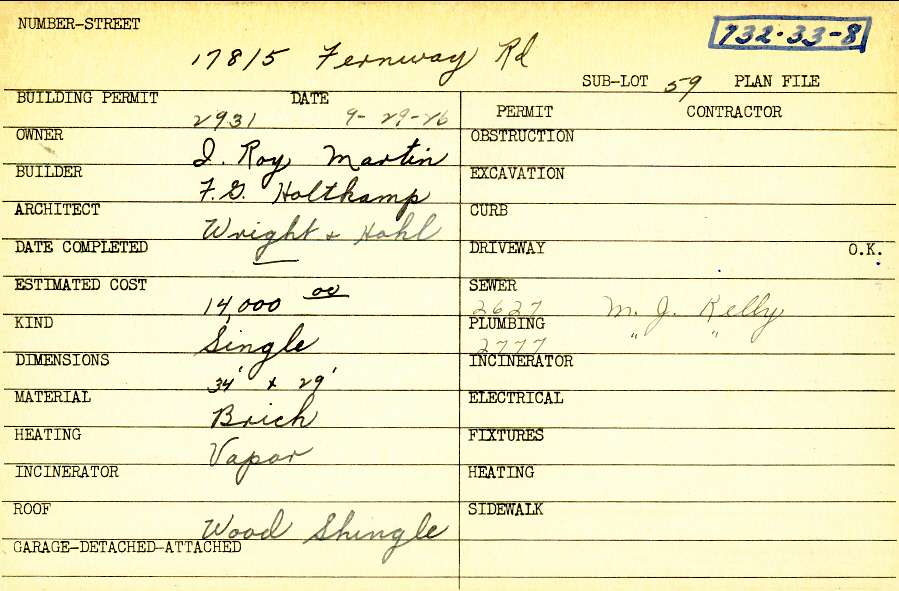 NUMBER-STREET
732-33-8
17815 Fernway Rd
SUB-LOT 59 PLAN FILE
BUILDING PERMIT 2931 DATE 9-29-26
OWNER J. Roy Martin
BUILDER F.G. Holtkamp
ARCHITECT Wright & Hohl
DATE COMPLETED —
ESTIMATED COST 14,000 00
KIND Single
DIMENSIONS 34' x 29'
MATERIAL Brick
HEATING Vapor
INCINERATOR
ROOF Wood Shingle
GARAGE-DETACHED-ATTACHED
PERMIT CONTRACTOR
OBSTRUCTION
EXCAVATION
CURB
DRIVEWAY O.K.
SEWER 2627 M. J. Kelly
PLUMBING 2777 " "
INCINERATOR
ELECTRICAL
FIXTURES
HEATING
SIDEWALK